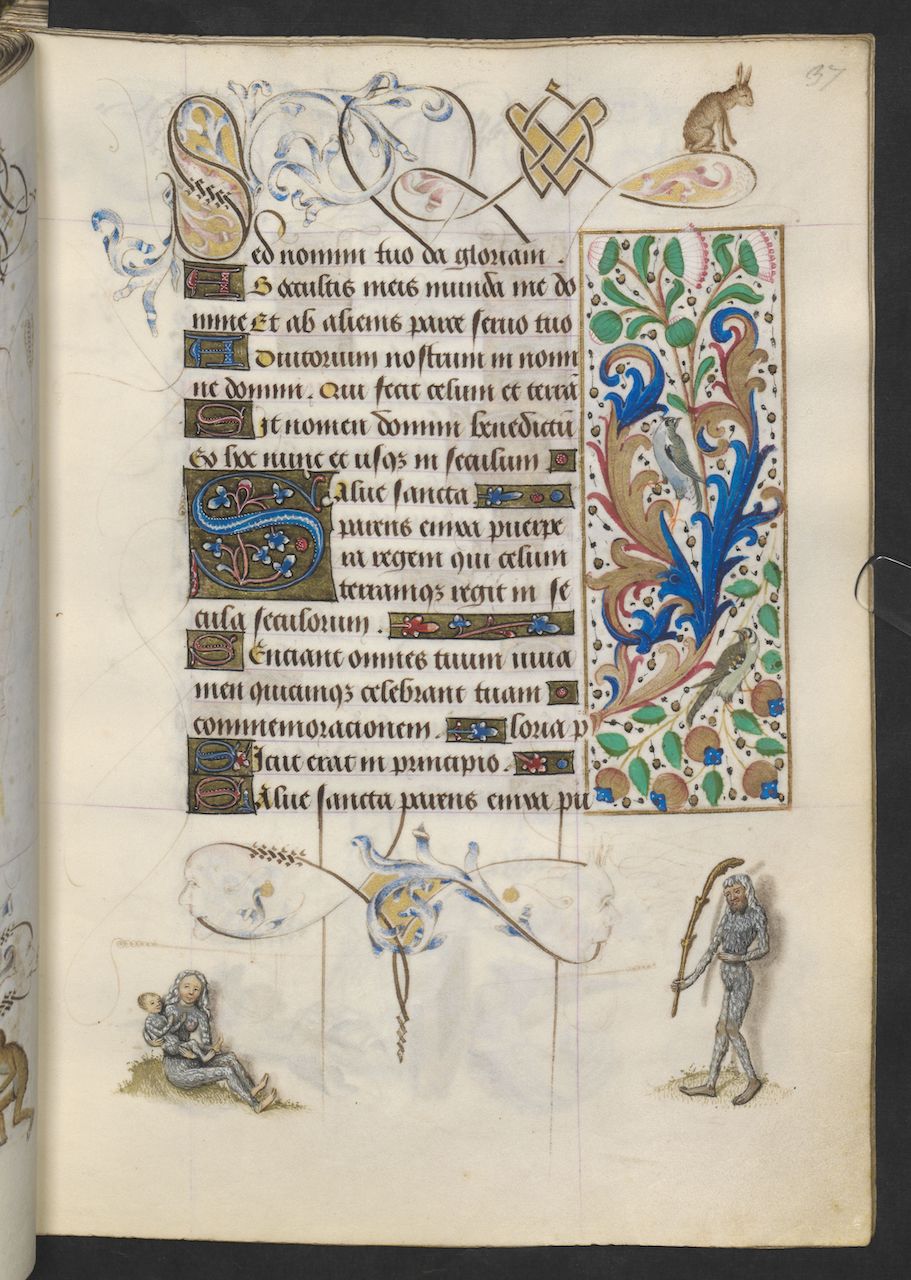 37
Sed nomini tuo da gloriam .
AB occultis meis munda me do
mine Et ab alienis parce seruo tuo
Adiutorium nostrum in nomi
ne domini . Qui fecit celum et terrā
Sit nomen domini benedictū
Ex hoc nunc et usqꝫ in seculum
Salue sancta
parens enixa puerpe
ra regem qui celum
terramqꝫ regit in se
cula seculorum .
SEnciant omnes tuum iuua
men quicumqꝫ celebrant tuam
commemoracionem . loria p
Sicut erat in principio .
Salue sancta parens enixa pu